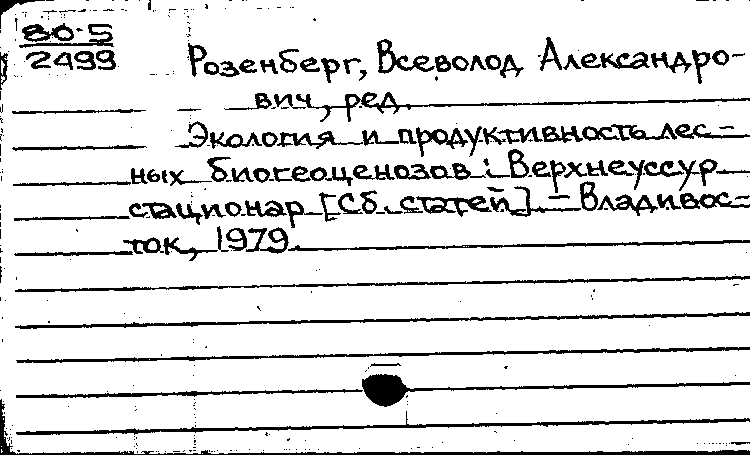 80-5
2499
Розенберг, Всеволод Александро-
вич, ред.
Экология и продуктивность лес-
ных биогеоценозов: Верхнеуссур
стационар [Сб. статей]. - Владивос-
ток, 1979.